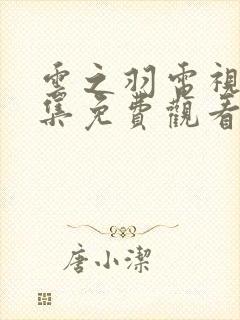 雲之羽電視
集免費觀看
唐小潔